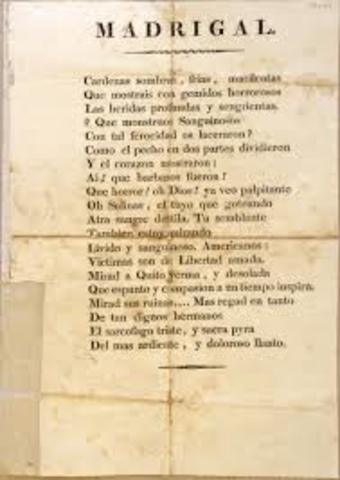 MADRIGAL.
Cardenas sombras, frias, macilentas
Que mostrais con gemidos horrorosos
Las heridas profundas y sangrientas.
? Que monstruos Sanguinosos
Con tal ferocidad os laceraron?
Como el pecho en dos partes dividieron
Y el corazon mostraron:
Ai! que barbaros fueron!
Que horror! oh Dios! ya veo palpitante
Oh Salinas, el tuyo que goteando
Atra sangre distila. Tu semblante
Tambien estoy mirando
Livido y sanguinoso. Americanos:
Victimas son de Libertad amada.
Mirad a Quito yerma, y desolada
Que espanto y compasion a un tiempo inspira.
Mirad sus ruinas.... Mas regad en tanto
De tan dignos hermanos
El sarcofago triste, y sacra pyra
Del mas ardiente, y doloroso llanto.